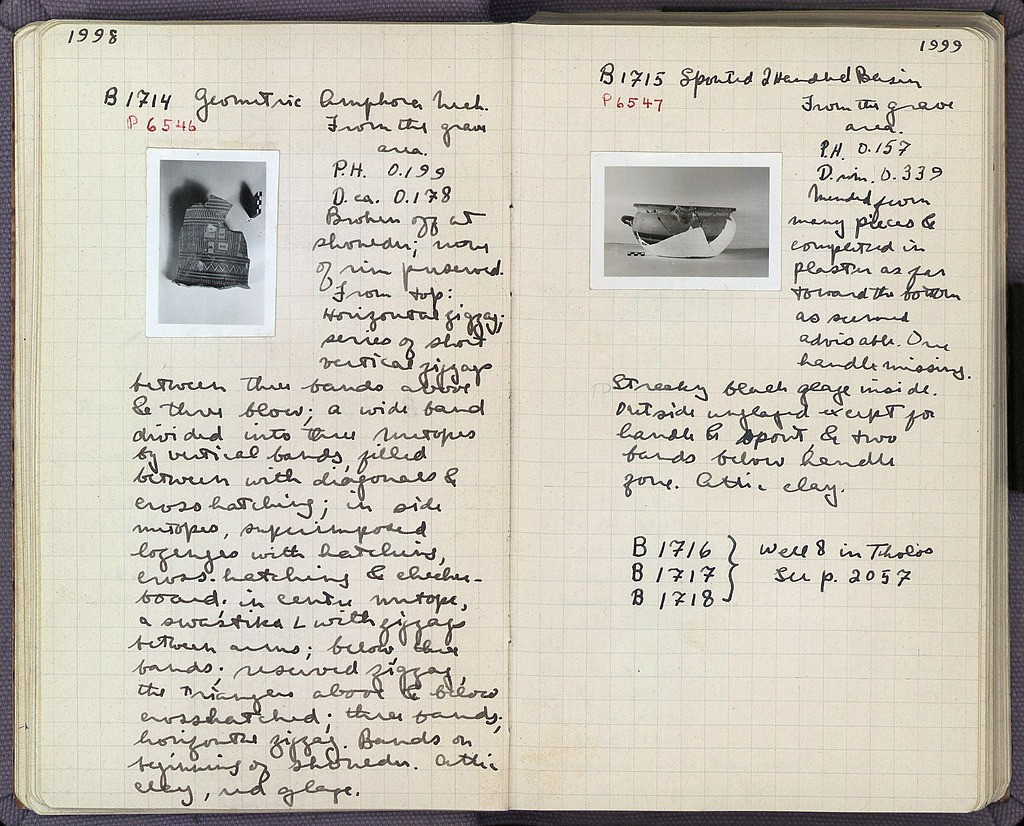 1998
B 1714 Geometric Amphora Neck.
P 6546
From the grave
area.
P.H. 0.199
D. ca. 0.178
Broken off at
shoulder; none
of rim preserved.
From top:
Horizontal zigzag;
series of short
vertical zigzags
between three bands above
& three blow; a wide band
divided into three metopes
by vertical bands, filled
between with diagonals &
crosshatching; in side
metopes, superimposed
lozenges with hatching,
cross-hatching & checker-
board; in centre metope,
a swastika with zigzags
between arms; below three
bands; reserved zigzag,
the triangles above & below
crosshatched; three bands;
horizontal zigzag. Bands on
beginning of shoulder. Attic
clay, red glaze.
1999
B 1715 Spouted 2 Handled Basin
P 6547
From the grave
area.
P.H. 0.157
D. rim. 0.339
Mended from
many pieces &
completed in
plaster as far
toward the bottom
as seemed
advisable. One
handle missing.
Streaky black glaze inside.
Outside unglazed except for
handle & spout, & two
bands below handle
zone. Attic clay.
B 1716 } Well 8 in Tholos
B 1717 } See p. 2057
B 1718 }